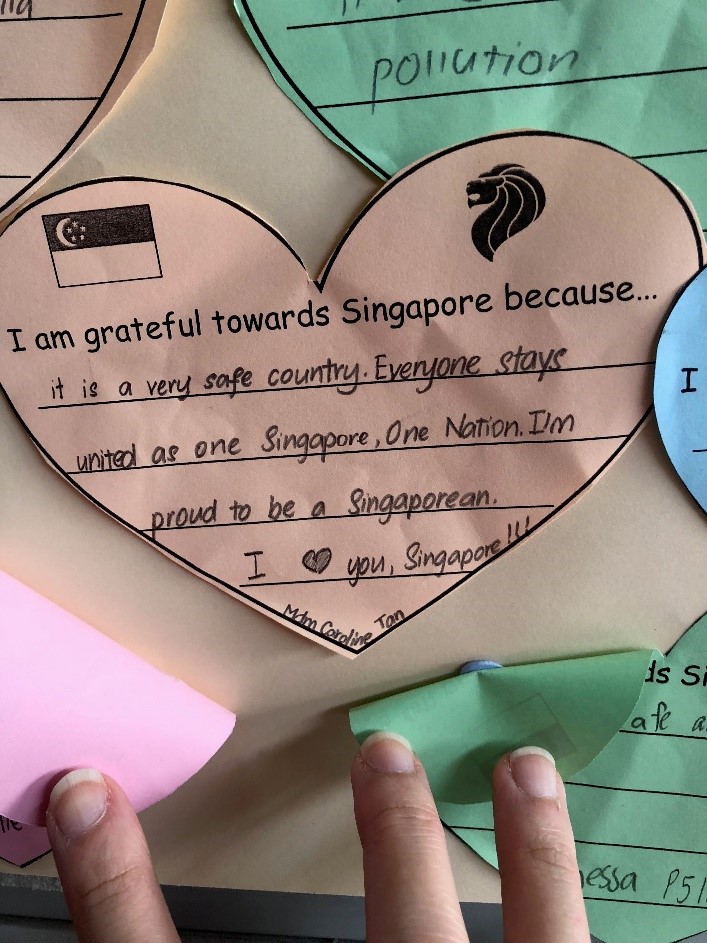 pollution
I am grateful towards Singapore because...
it is a very safe country. Everyone stays
united as one Singapore, One Nation. I'm
proud to be a Singaporean.
I ♥ you, Singapore!!!
Mdm Caroline Tan
I
ds Si
afe a
essa P5/